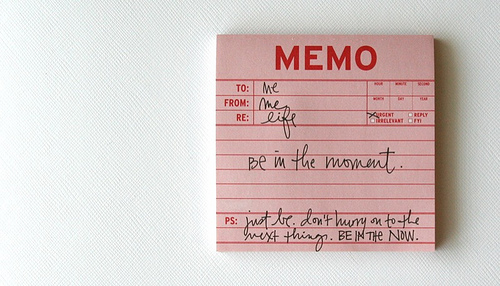 MEMO
TO: me
HOUR MINUTE SECOND
FROM: me
MONTH DAY YEAR
RE: life
URGENT REPLY
IRRELEVANT FYI
BE in the moment.
PS: just be. don't hurry on to the
next things. BE IN THE NOW.